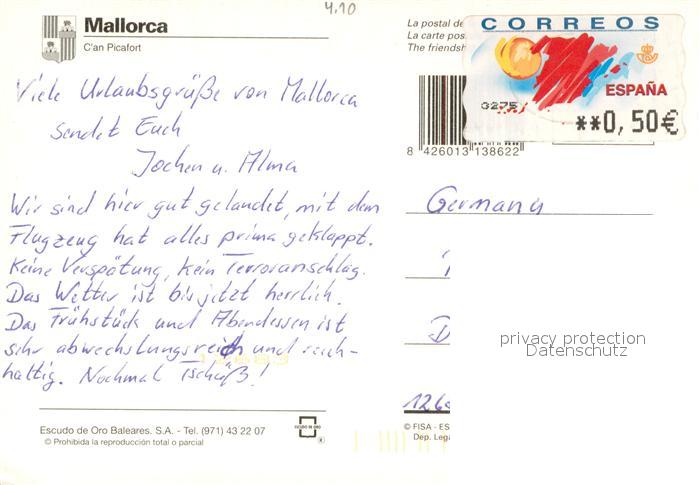 4.10
Mallorca
C'an Picafort
La postal de
La carte pos
The friendsh
CORREOS
ESPAÑA
0275
**0,50€
8 426013 138622
Viele Urlaubsgrüße von Mallorca
sendet Euch
Jochen u. Alma
Wir sind hier gut gelandet, mit dem
Flugzeug hat alles prima geklappt.
Keine Verspätung, kein Terroranschlag.
Das Wetter ist bis jetzt herrlich.
Das Frühstück und Abendessen ist
sehr abwechslungsreich und reich-
haltig. Nochmal Tschüß!
Germany
D
126
privacy protection
Datenschutz
Escudo de Oro Baleares. S.A. - Tel. (971) 43 22 07
© Prohibida la reproducción total o parcial
ESCUDO DE ORO
®
© FISA - ES
Dep. Lega